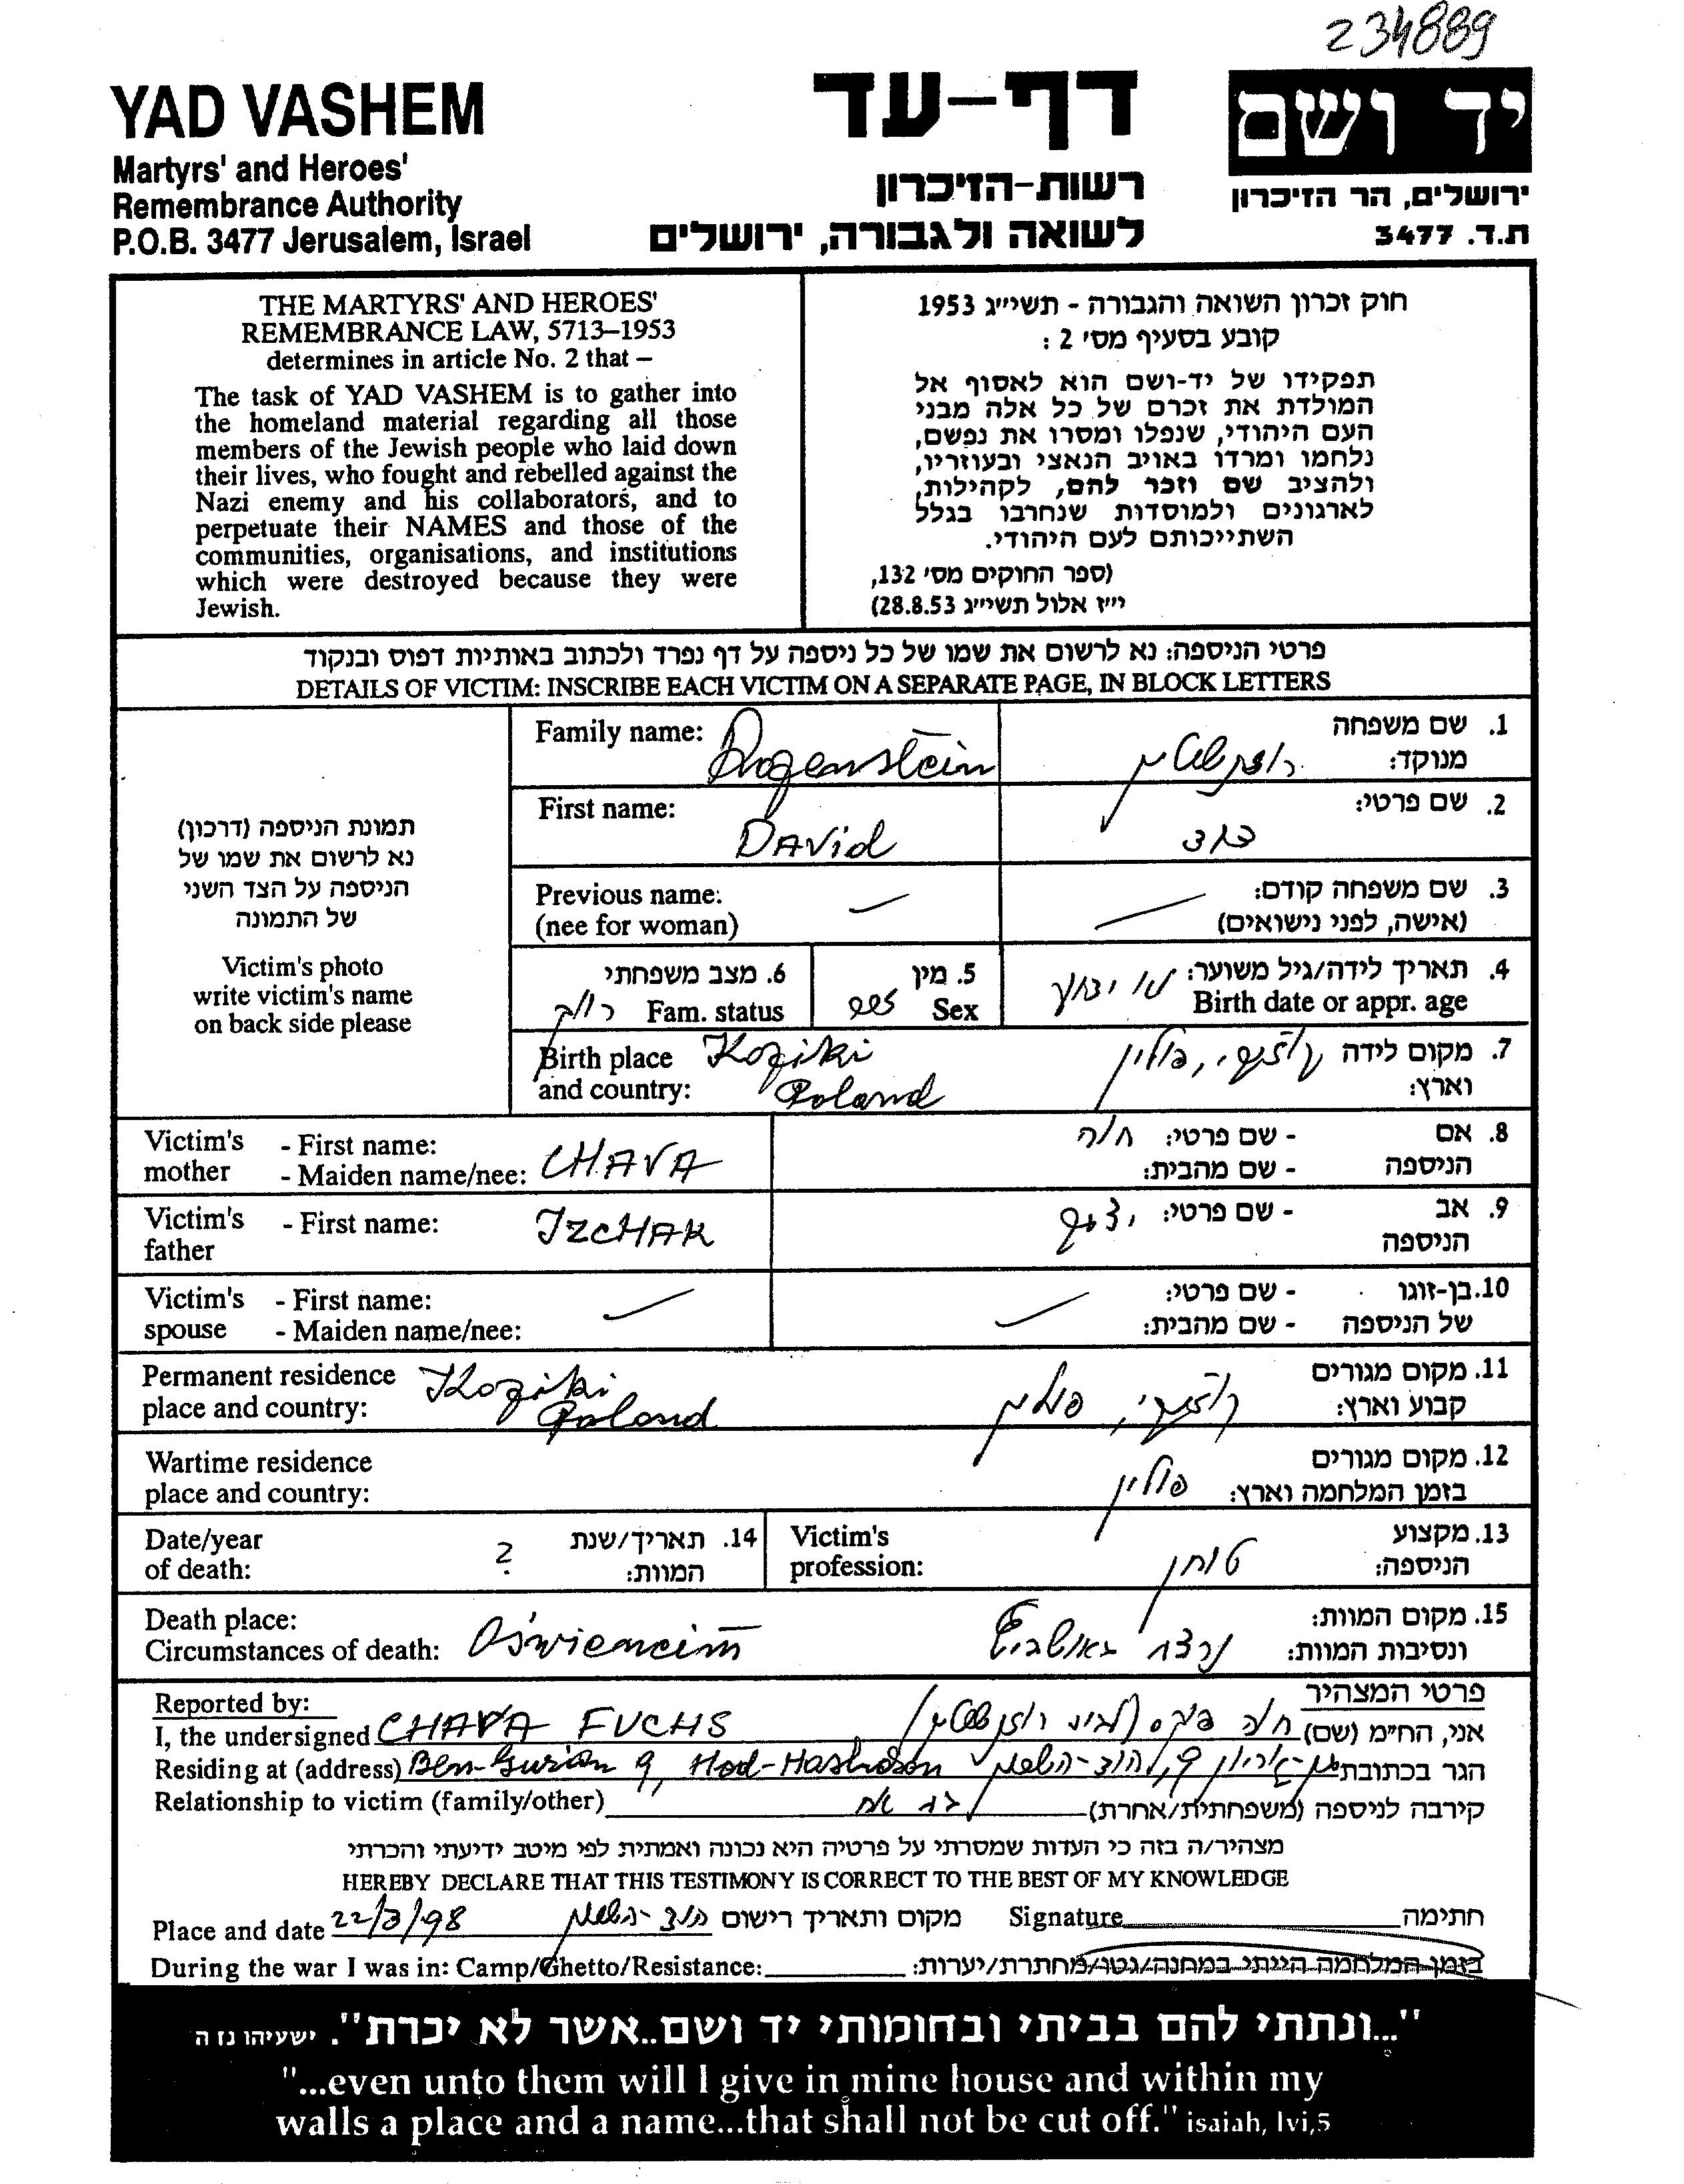 234889
YAD VASHEM
Martyrs' and Heroes'
Remembrance Authority
P.O.B. 3477 Jerusalem, Israel
דף-עד
רשות-הזיכרון
לשואה ולגבורה, ירושלים
יד ושם
ירושלים, הר הזיכרון
ת.ד. 3477
THE MARTYRS' AND HEROES'
REMEMBRANCE LAW, 5713–1953
determines in article No. 2 that –
The task of YAD VASHEM is to gather into
the homeland material regarding all those
members of the Jewish people who laid down
their lives, who fought and rebelled against the
Nazi enemy and his collaborators, and to
perpetuate their NAMES and those of the
communities, organisations, and institutions
which were destroyed because they were
Jewish.
חוק זכרון השואה והגבורה - תשי״ג 1953
קובע בסעיף מס׳ 2 :
תפקידו של יד-ושם הוא לאסוף אל
המולדת את זכרם של כל אלה מבני
העם היהודי, שנפלו ומסרו את נפשם,
נלחמו ומרדו באויב הנאצי ובעוזריו,
ולהציב שם וזכר להם, לקהילות,
לארגונים ולמוסדות שנחרבו בגלל
השתייכותם לעם היהודי.
(ספר החוקים מס׳ 132,
י״ז אלול תשי״ג 28.8.53)
פרטי הניספה: נא לרשום את שמו של כל ניספה על דף נפרד ולכתוב באותיות דפוס ובנקוד
DETAILS OF VICTIM: INSCRIBE EACH VICTIM ON A SEPARATE PAGE, IN BLOCK LETTERS
תמונת הניספה (דרכון)
נא לרשום את שמו של
הניספה על הצד השני
של התמונה
Victim's photo
write victim's name
on back side please
Family name: Rogenstein
1. שם משפחה
מנוקד: רוזנשטיין
First name: DAVid
2. שם פרטי: דוד
Previous name:
(nee for woman)
3. שם משפחה קודם:
(אישה, לפני נישואים)
4. תאריך לידה/גיל משוער: לא ידוע
Birth date or appr. age
5. מין
Sex זכר
6. מצב משפחתי
Fam. status רווק
Birth place Koziki
and country: Poland
7. מקום לידה קוזיקי, פולין
וארץ:
Victim's - First name:
mother - Maiden name/nee: CHAVA
8. אם - שם פרטי: חוה
הניספה - שם מהבית:
Victim's - First name: IZCHAK
father
9. אב - שם פרטי: יצחק
הניספה
Victim's - First name:
spouse - Maiden name/nee:
10. בן-זוגו - שם פרטי:
של הניספה - שם מהבית:
Permanent residence Koziki
place and country: Poland
11. מקום מגורים
קבוע וארץ: קוזיקי, פולין
Wartime residence
place and country:
12. מקום מגורים
בזמן המלחמה וארץ: פולין
Date/year
of death: ?
14. תאריך/שנת
המוות:
Victim's
profession:
13. מקצוע
הניספה: טוחן
Death place:
Circumstances of death: Oświencim
15. מקום המוות:
ונסיבות המוות: נרצח באושביץ
Reported by:
פרטי המצהיר
I, the undersigned CHAVA FUCHS
אני, הח״מ (שם) חוה פוקס (לבית רוזנשטיין)
Residing at (address) Ben-Gurion 9, Hod-Hasharon
הגר בכתובת בן-גוריון 9, הוד-השרון
Relationship to victim (family/other)
קירבה לניספה (משפחתית/אחרת) בת אח
מצהיר/ה בזה כי העדות שמסרתי על פרטיה היא נכונה ואמתית לפי מיטב ידיעתי והכרתי
HEREBY DECLARE THAT THIS TESTIMONY IS CORRECT TO THE BEST OF MY KNOWLEDGE
Place and date 22/3/98 הוד-השרון מקום ותאריך רישום Signature חתימה
During the war I was in: Camp/Ghetto/Resistance: בזמן המלחמה הייתי במחנה/גטו/מחתרת/יערות:
"...ונתתי להם בביתי ובחומותי יד ושם..אשר לא יכרת". ישעיהו נז ה
"...even unto them will I give in mine house and within my
walls a place and a name...that shall not be cut off." isaiah, lvi,5